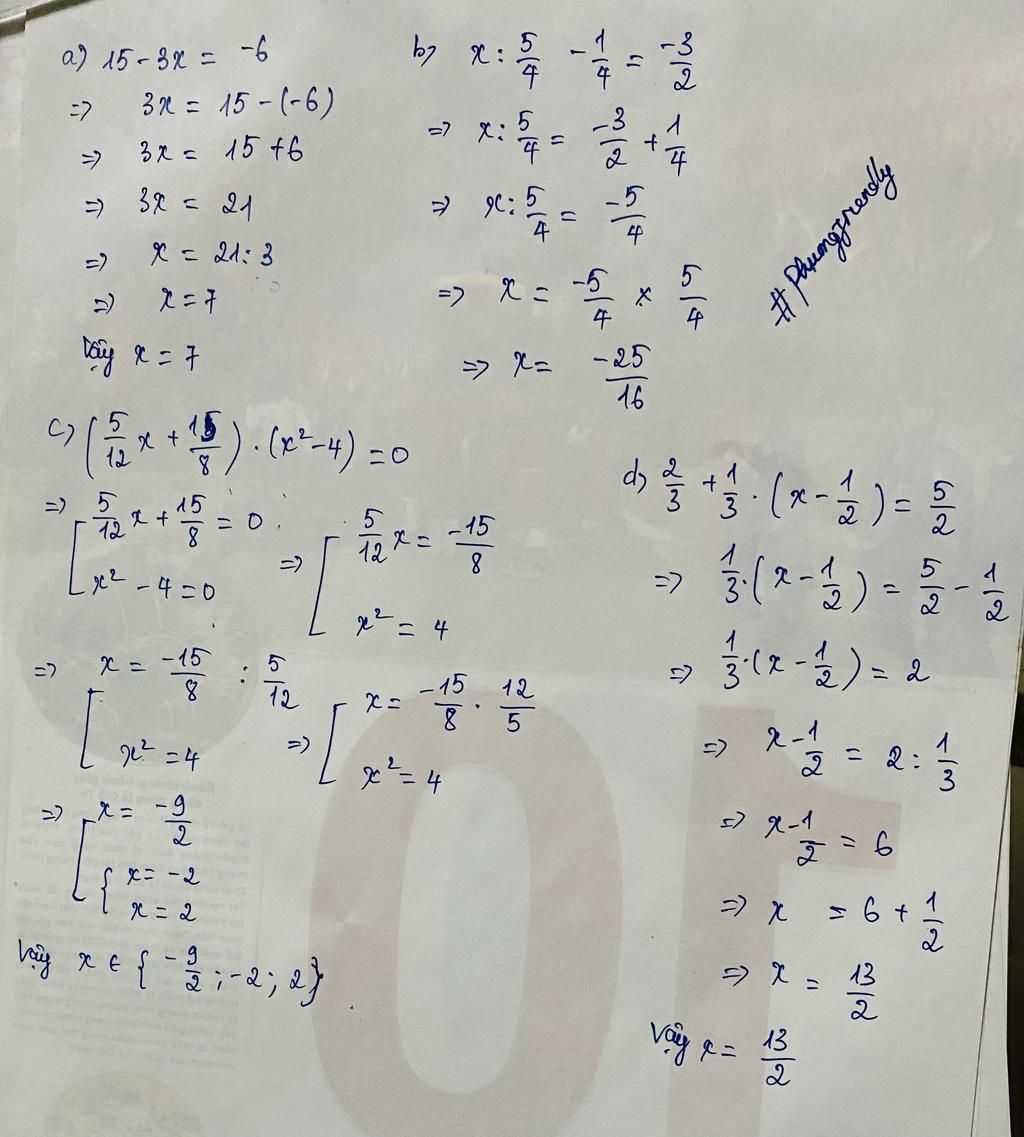 a) 15 - 3x = -6
=> 3x = 15 - (-6)
=> 3x = 15 + 6
=> 3x = 21
=> x = 21 : 3
=> x = 7
Vậy x = 7
b) x : 5/4 - 1/4 = -3/2
=> x : 5/4 = -3/2 + 1/4
=> x : 5/4 = -5/4
=> x = -5/4 × 5/4
=> x = -25/16
#Phuongfriendly
c) (5/12 x + 15/8) . (x² - 4) = 0
=> [ 5/12 x + 15/8 = 0
x² - 4 = 0
=> [ 5/12 x = -15/8
x² = 4
=> [ x = -15/8 : 5/12
x² = 4
=> [ x = -15/8 . 12/5
x² = 4
=> [ x = -9/2
{ x = -2
x = 2
Vậy x ∈ { -9/2 ; -2 ; 2 }
d) 2/3 + 1/3 . (x - 1/2) = 5/2
=> 1/3 . (x - 1/2) = 5/2 - 1/2
=> 1/3 . (x - 1/2) = 2
=> x - 1/2 = 2 : 1/3
=> x - 1/2 = 6
=> x = 6 + 1/2
=> x = 13/2
Vậy x = 13/2
10